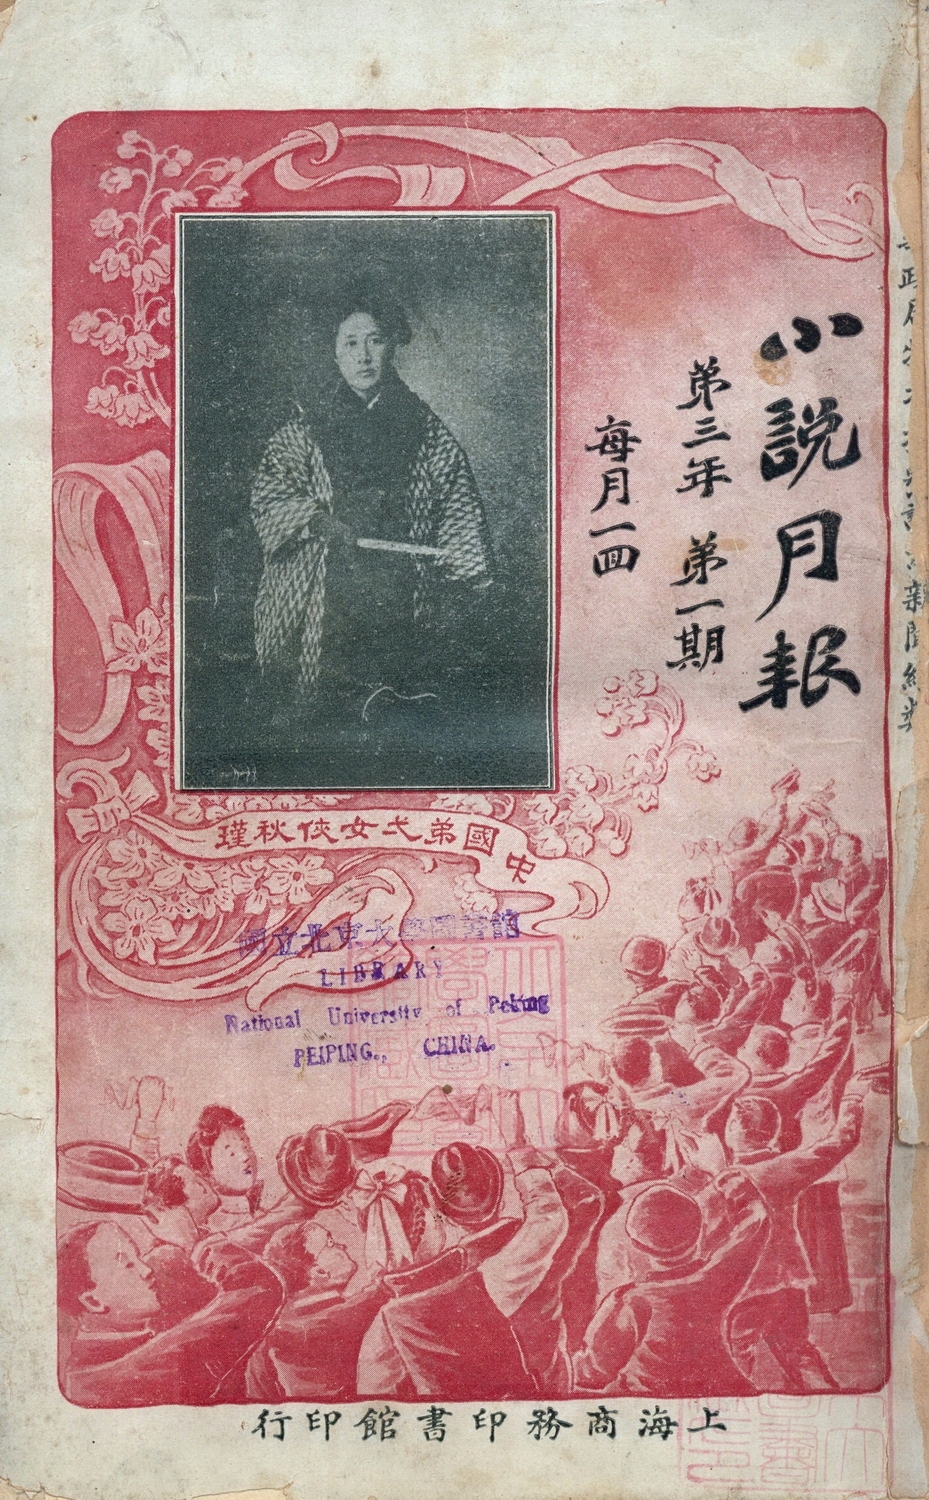 小說月報
第三年 第一期
每月一回
中國弟弌女俠秋瑾
國立北京大學圖書館
LIBRARY
National University of Peking
PEIPING., CHINA.
上海商務印書館印行
新聞紙